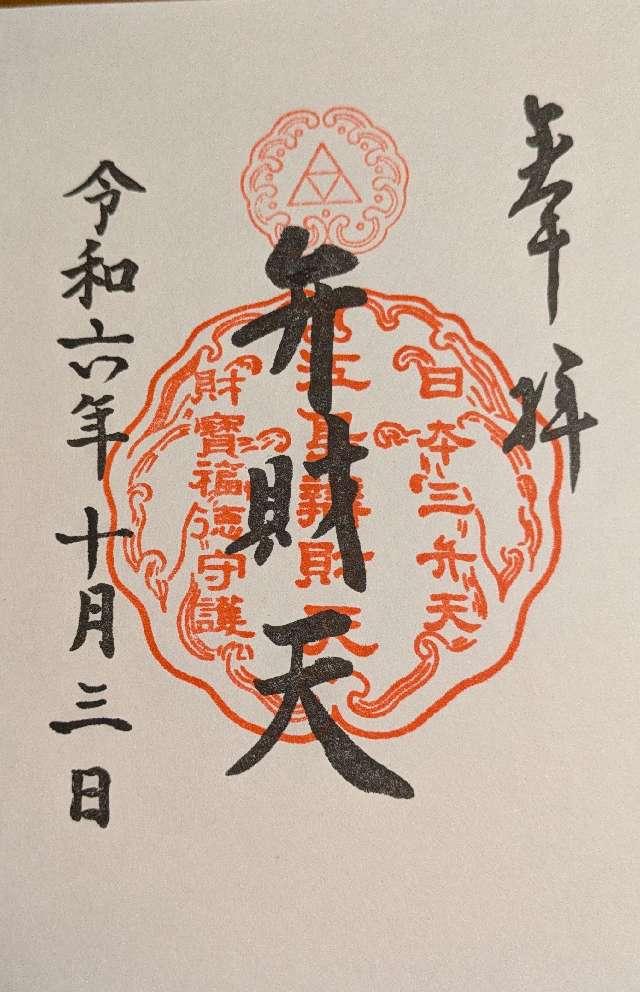 奉拝
日本三弁天
弁財天
財寶福徳守護
令和六年十月三日